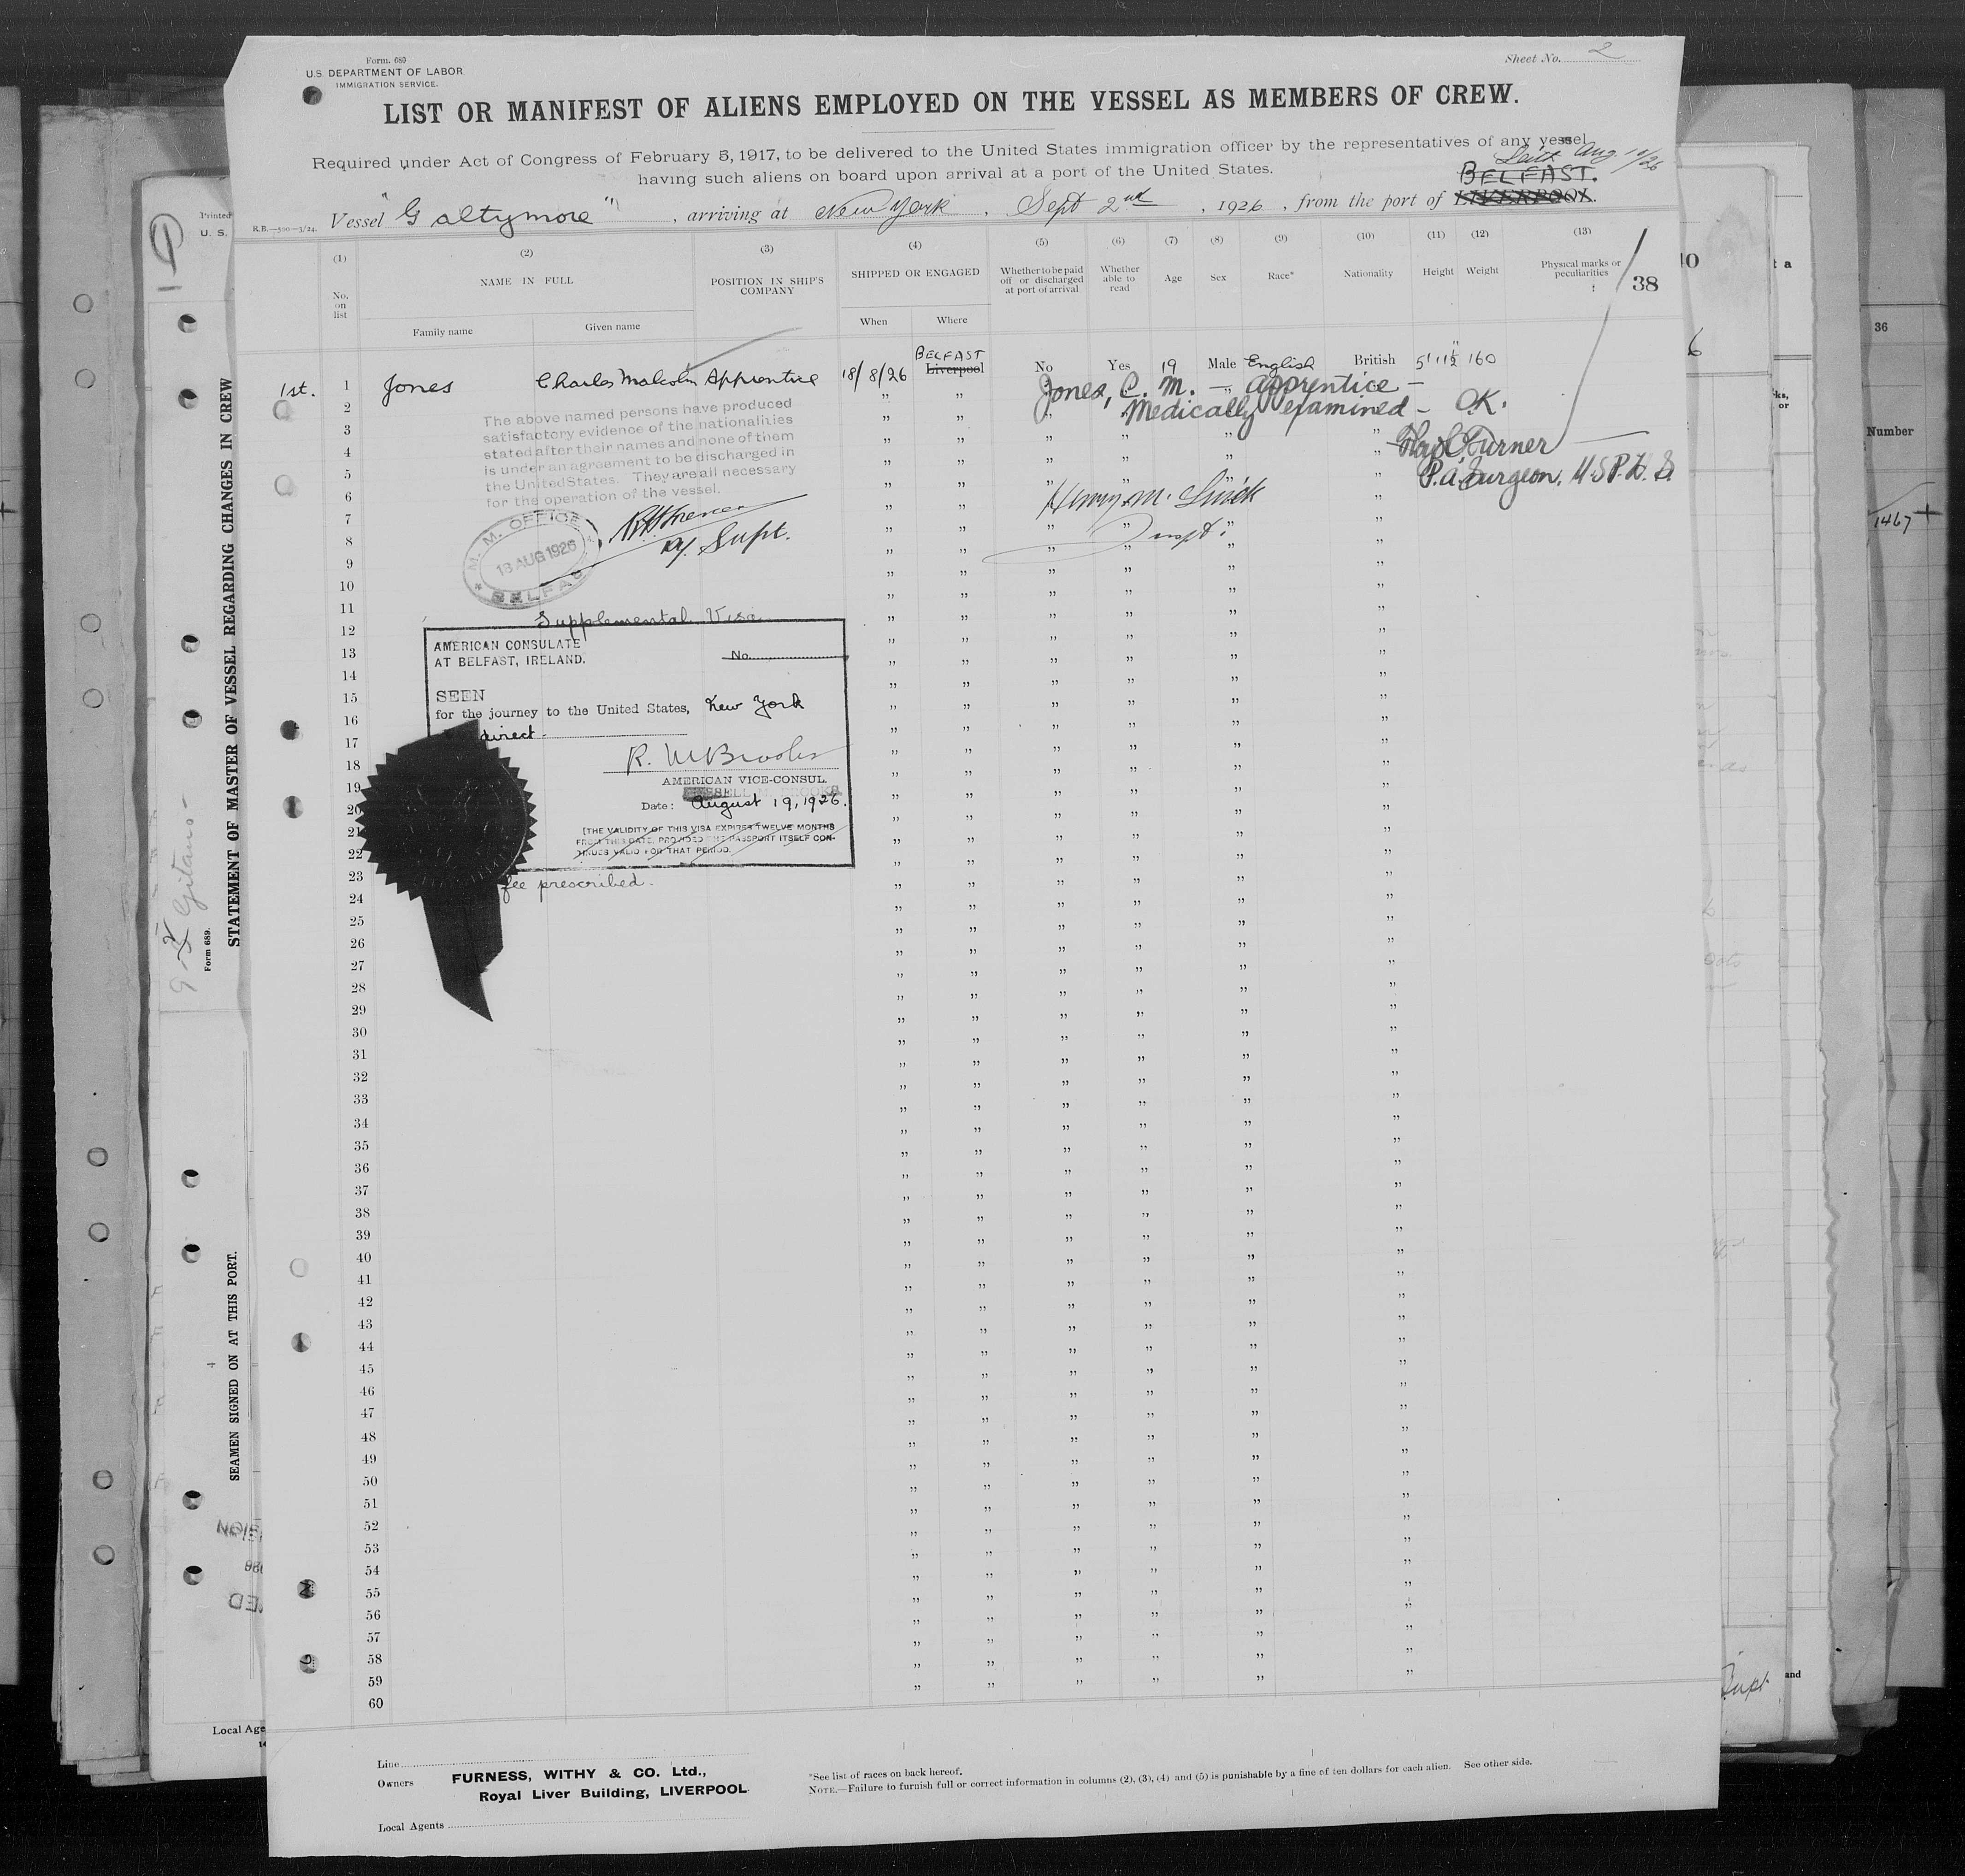 Form. 680
U.S. DEPARTMENT OF LABOR
IMMIGRATION SERVICE.
Sheet No. 2
LIST OR MANIFEST OF ALIENS EMPLOYED ON THE VESSEL AS MEMBERS OF CREW.
Required under Act of Congress of February 5, 1917, to be delivered to the United States immigration officer by the representatives of any vessel
having such aliens on board upon arrival at a port of the United States.
Leith Aug 11/26
BELFAST.
R.B.—500—3/24. Vessel "Galtymore", arriving at New York, Sept 2nd, 1926, from the port of LIVERPOOL.
(1) (2) (3) (4) (5) (6) (7) (8) (9) (10) (11) (12) (13)
No. on list
NAME IN FULL
Family name
Given name
POSITION IN SHIP'S COMPANY
SHIPPED OR ENGAGED
When
Where
Whether to be paid off or discharged at port of arrival
Whether able to read
Age
Sex
Race*
Nationality
Height
Weight
Physical marks or peculiarities
38
BELFAST
1st. 1 Jones Charles Malcolm Apprentice 18/8/26 Liverpool No Yes 19 Male English British 5'11½" 160
Jones, C. M. — apprentice —
Medically examined — O.K.
Turner
P.A. Surgeon, U.S.P.H.S.
Henry M.
Inspt.
The above named persons have produced
satisfactory evidence of the nationalities
stated after their names and none of them
is under an agreement to be discharged in
the United States. They are all necessary
for the operation of the vessel.
Supt.
M. M. OFFICE
18 AUG 1926
BELFAST
Supplemental Visa
AMERICAN CONSULATE
AT BELFAST, IRELAND.
No.
SEEN
for the journey to the United States, New York
direct -
R. M Brooks
AMERICAN VICE-CONSUL.
RUSSELL M. BROOKS
Date: August 19, 1926.
(THE VALIDITY OF THIS VISA EXPIRES TWELVE MONTHS
FROM THIS DATE, PROVIDED THE PASSPORT ITSELF CON-
TINUES VALID FOR THAT PERIOD.
fee prescribed.
2
3
4
5
6
7
8
9
10
11
12
13
14
15
16
17
18
19
20
21
22
23
24
25
26
27
28
29
30
31
32
33
34
35
36
37
38
39
40
41
42
43
44
45
46
47
48
49
50
51
52
53
54
55
56
57
58
59
60
Line
Owners FURNESS, WITHY & CO. Ltd.,
Royal Liver Building, LIVERPOOL
Local Agents
*See list of races on back hereof.
NOTE.—Failure to furnish full or correct information in columns (2), (3), (4) and (5) is punishable by a fine of ten dollars for each alien. See other side.
Printed
U. S.
STATEMENT OF MASTER OF VESSEL REGARDING CHANGES IN CREW
Form 689.
SEAMEN SIGNED ON AT THIS PORT.
Gitano
Local Age
36
Number
1467
and